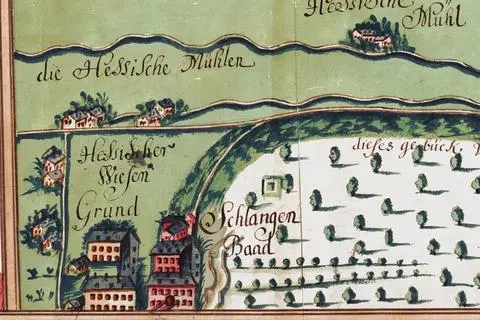 Hessische
Mühl
die Hessische Mühlen
dieses gebück,
Hessischer
Wiesen
Grund
Schlangen
Baad